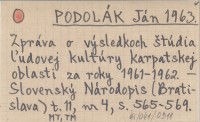 PODOLÁK Ján 1963.
Zpráva o výsledkoch štúdia
ľudovej kultúry karpatskej
oblasti za roky 1961-1962. -
Slovenský Národopis (Brati-
slava) t. 11, nr 4, s. 565-569.
MT, TM